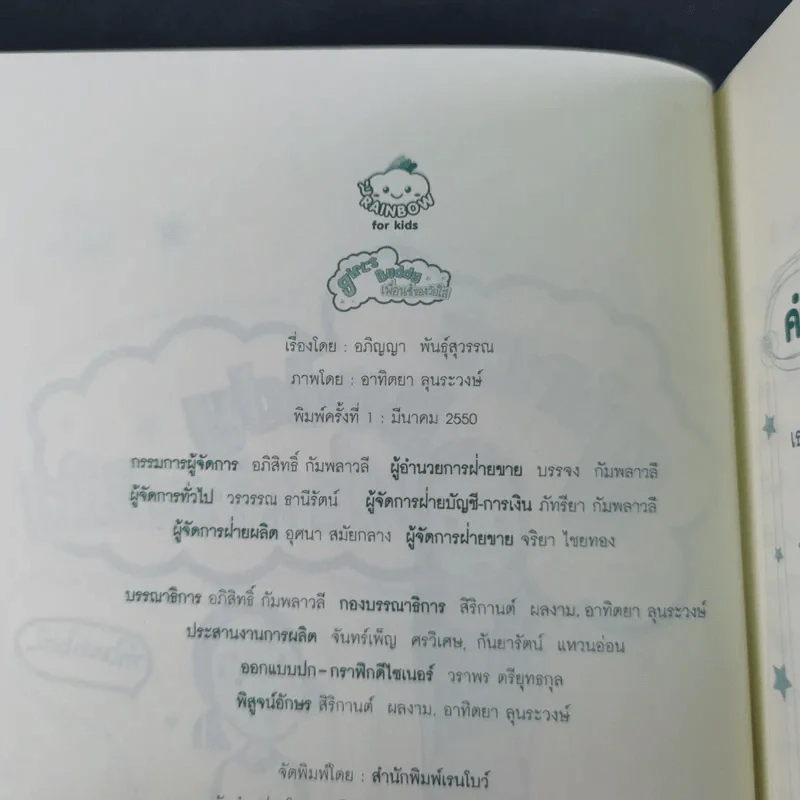 RAINBOW
for kids
girl's Buddy
เพื่อนซี้ของวัยใส
เรื่องโดย : อภิญญา พันธุ์สุวรรณ
ภาพโดย : อาทิตยา ลุนระวงษ์
พิมพ์ครั้งที่ 1 : มีนาคม 2550
กรรมการผู้จัดการ อภิสิทธิ์ กัมพลาวลี ผู้อำนวยการฝ่ายขาย บรรจง กัมพลาวลี
ผู้จัดการทั่วไป วรวรรณ ธานีรัตน์ ผู้จัดการฝ่ายบัญชี-การเงิน ภัทรียา กัมพลาวลี
ผู้จัดการฝ่ายผลิต อุศนา สมัยกลาง ผู้จัดการฝ่ายขาย จริยา ไชยทอง
บรรณาธิการ อภิสิทธิ์ กัมพลาวลี กองบรรณาธิการ สิริกานต์ ผลงาม, อาทิตยา ลุนระวงษ์
ประสานงานการผลิต จันทร์เพ็ญ ศรวิเศษ, กันยารัตน์ แหวนอ่อน
ออกแบบปก-กราฟิกดีไซเนอร์ วราพร ตรียุทธกุล
พิสูจน์อักษร สิริกานต์ ผลงาม, อาทิตยา ลุนระวงษ์
จัดพิมพ์โดย : สำนักพิมพ์เรนโบว์